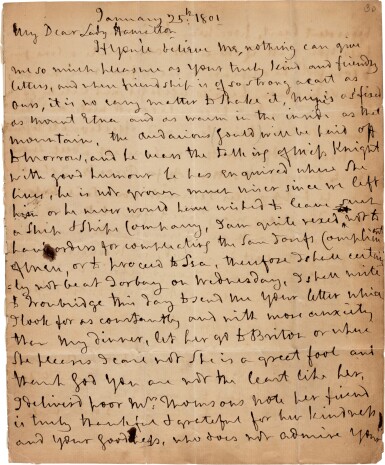 30
January 25th: 1801
My Dear Lady Hamilton
If you'l believe me, nothing can give
me so much pleasure as your truly kind and friendly
letters, and where friendship is of so strong a cast as
ours, it is no easy matter to shake it, mine is as fixed
as Mount Etna and as warm in the inside as that
mountain, the audacious Gould will be paid off
tomorrow, and he bears the talking of Miss Knight
with good humour he has enquired where she
lives, he is not grown much wiser since we left
him or he never would have wished to leave such
a Ship & Ships Company, I am quite vexed not to
have orders for compleating the San Josefs complimt
of men, or to proceed to Sea, therefore I shall certain
-ly not be at Torbay on Wednesday, I shall write
to Trowbridge this day to send me your letter which
I look for as constantly and with more anxiety
than my dinner, let her go to Briton or where
she pleases I care not she is a great fool and
thank God you are not the least like her,
I deliver'd poor Mrs. Thomsons note her friend
is truly thankful & grateful for her kindness
and your goodness, who does not admire your